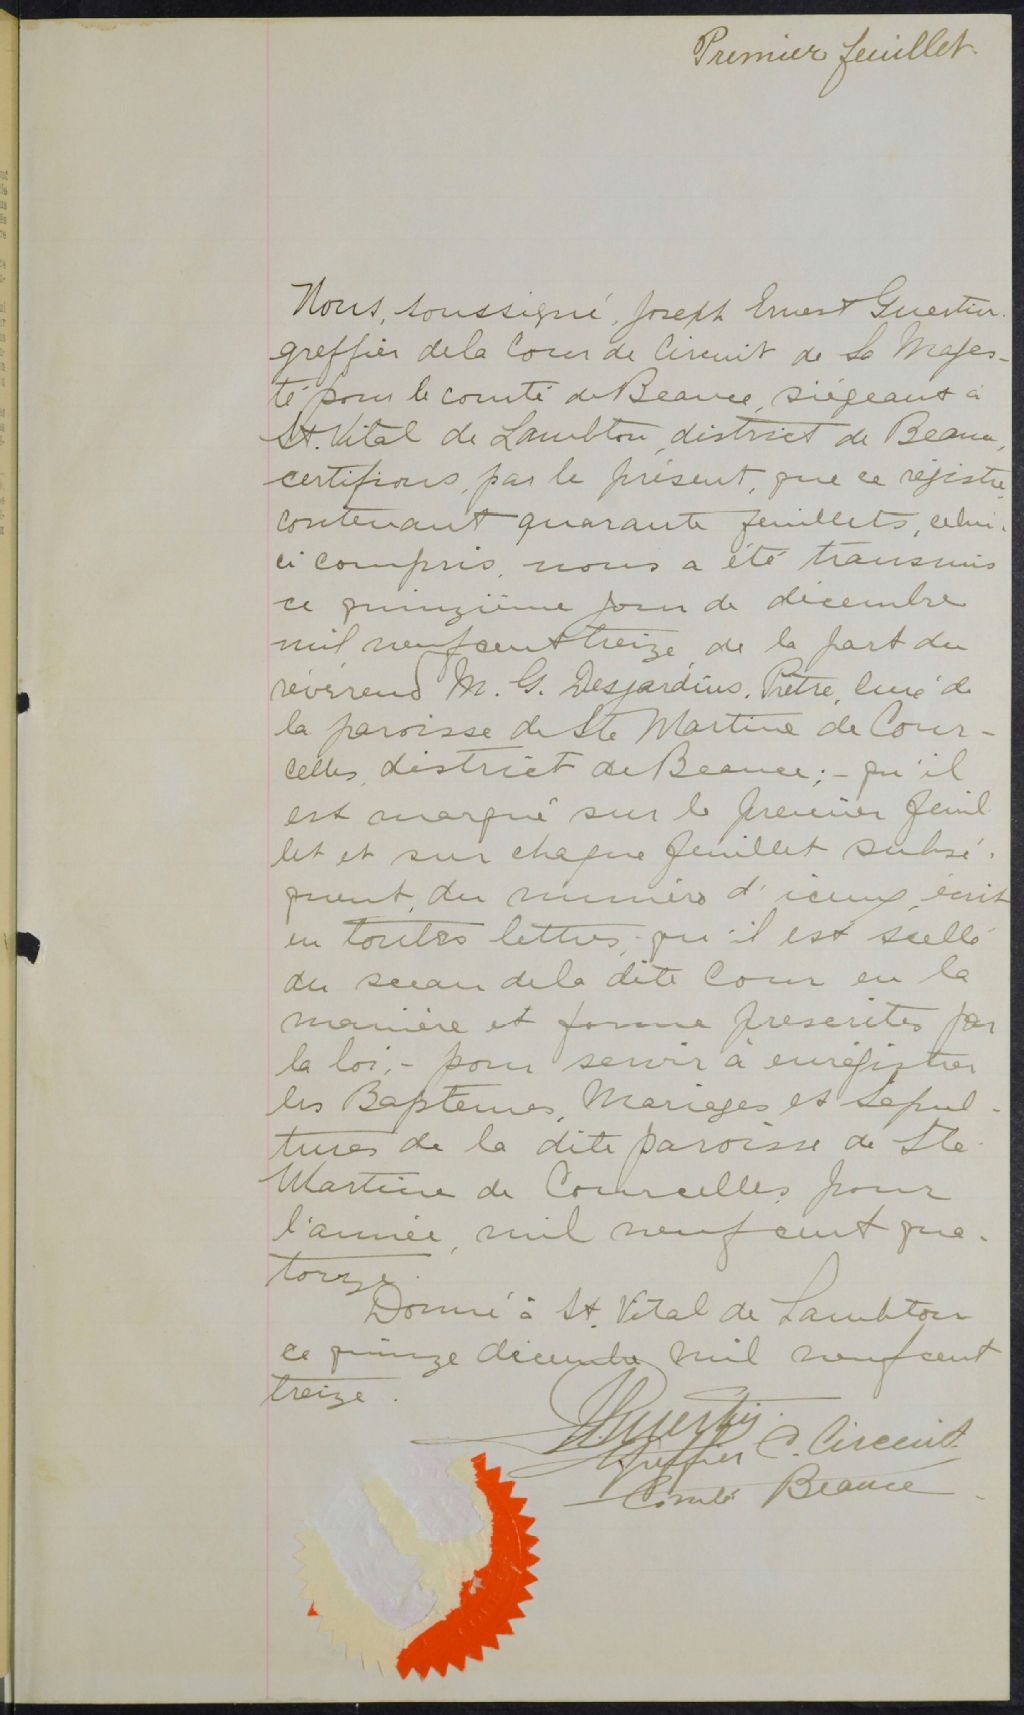 Premier feuillet.
Nous, soussigné, Joseph Ernest Guertin
greffier de la Cour de Circuit de Sa Majes-
té pour le comté de Beauce, siégeant à
St. Vital de Lambton, district de Beauce,
certifions, par le présent, que ce régistre,
contenant quarante feuillets, celui-
ci compris, nous a été transmis
ce quinzième jour de décembre
mil neuf cent treize de la part du
révérend M. G. Desjardins, Prêtre, curé de
la paroisse de Ste Martine de Cour-
celles, district de Beauce; - qu'il
est marqué sur le premier feuil
let et sur chaque feuillet subsé-
quent, du numéro d'iceux, écrit
en toutes lettres; qu'il est scellé
du sceau de la dite Cour en la
manière et forme prescrites par
la loi, - pour servir à enrégistrer
les Baptemes, Mariages et Sépul-
tures de la dite paroisse de Ste
Martine de Courcelles pour
l'année, mil neuf cent qua-
torze.
Donné à St. Vital de Lambton
ce quinze décembre mil neuf cent
treize.
Guertin
Greffier C. Circuit
Comté Beauce